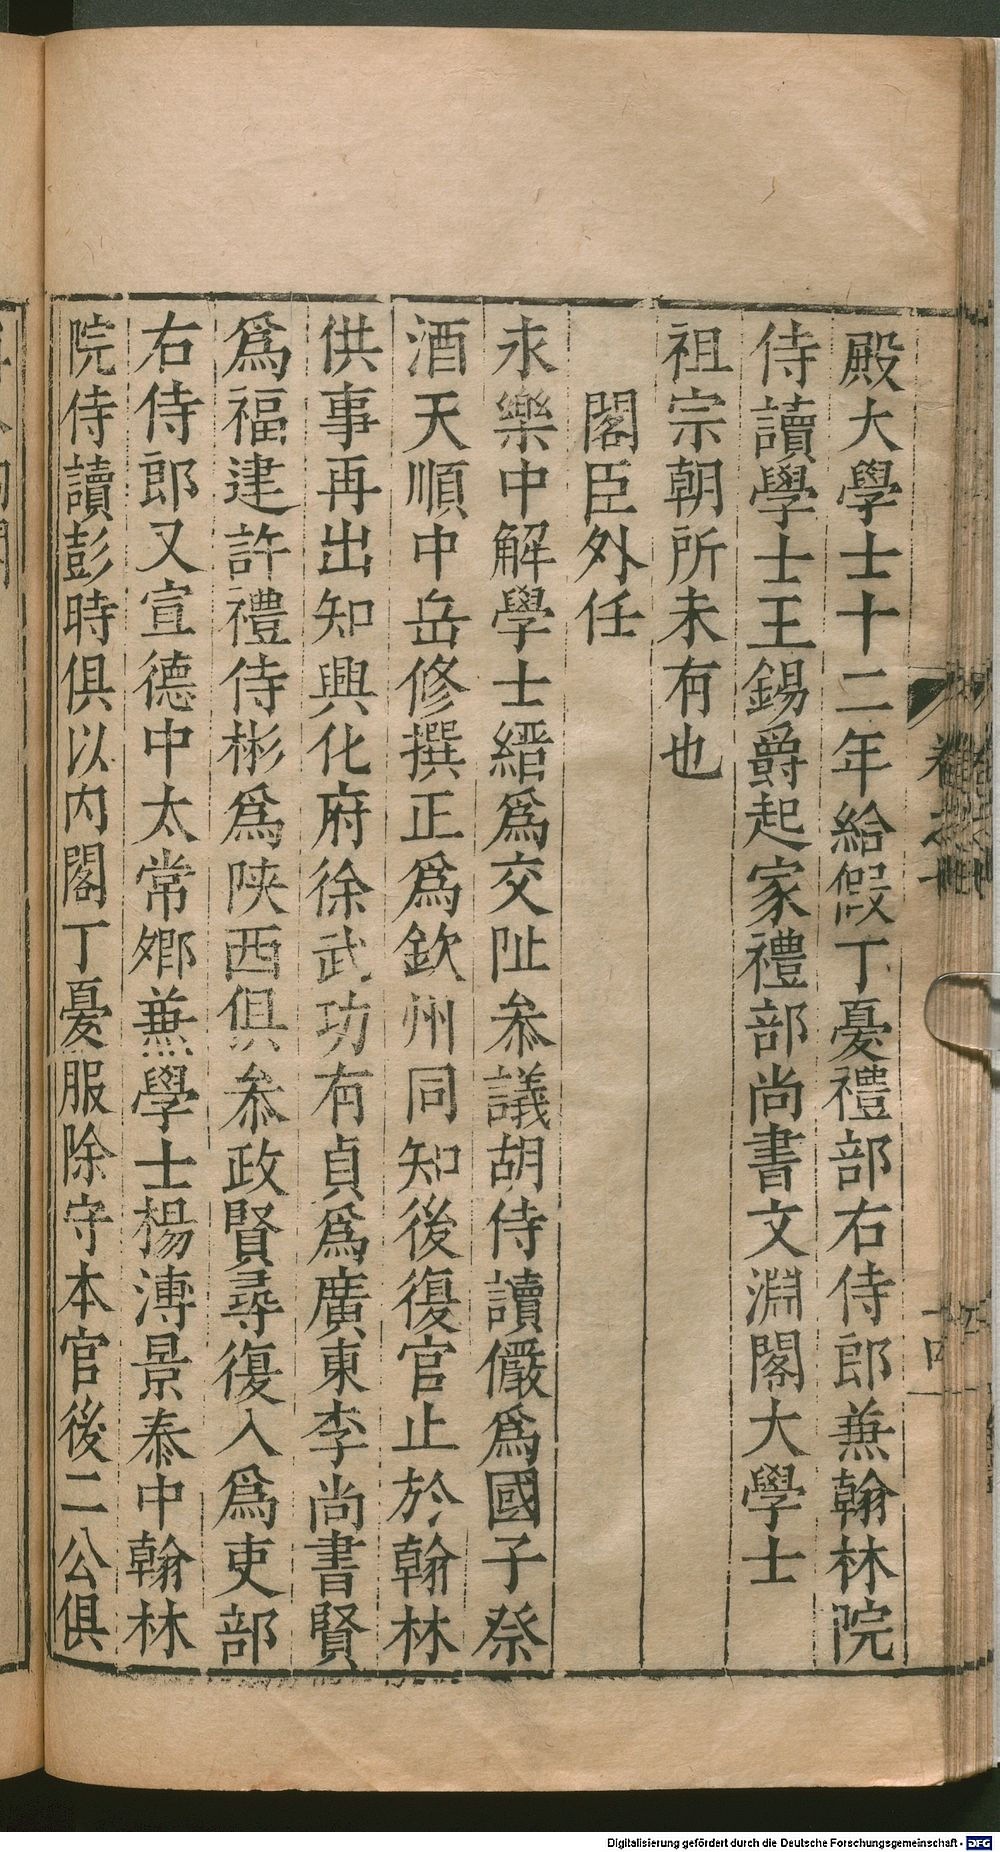 殿大學士十二年給假丁憂禮部右侍郎兼翰林院
侍讀學士王錫爵起家禮部尚書文淵閣大學士
祖宗朝所未有也
閣臣外任
永樂中解學士縉爲交阯叅議胡侍讀儼爲國子祭
酒天順中岳修撰正爲欽州同知後復官止於翰林
供事再出知興化府徐武功有貞爲廣東李尚書賢
爲福建許禮侍彬爲陝西俱叅政賢尋復入爲吏部
右侍郎又宣德中太常卿兼學士楊溥景泰中翰林
院侍讀彭時俱以内閣丁憂服除守本官後二公俱
卷之十
十四
Digitalisierung gefördert durch die Deutsche Forschungsgemeinschaft - DFG